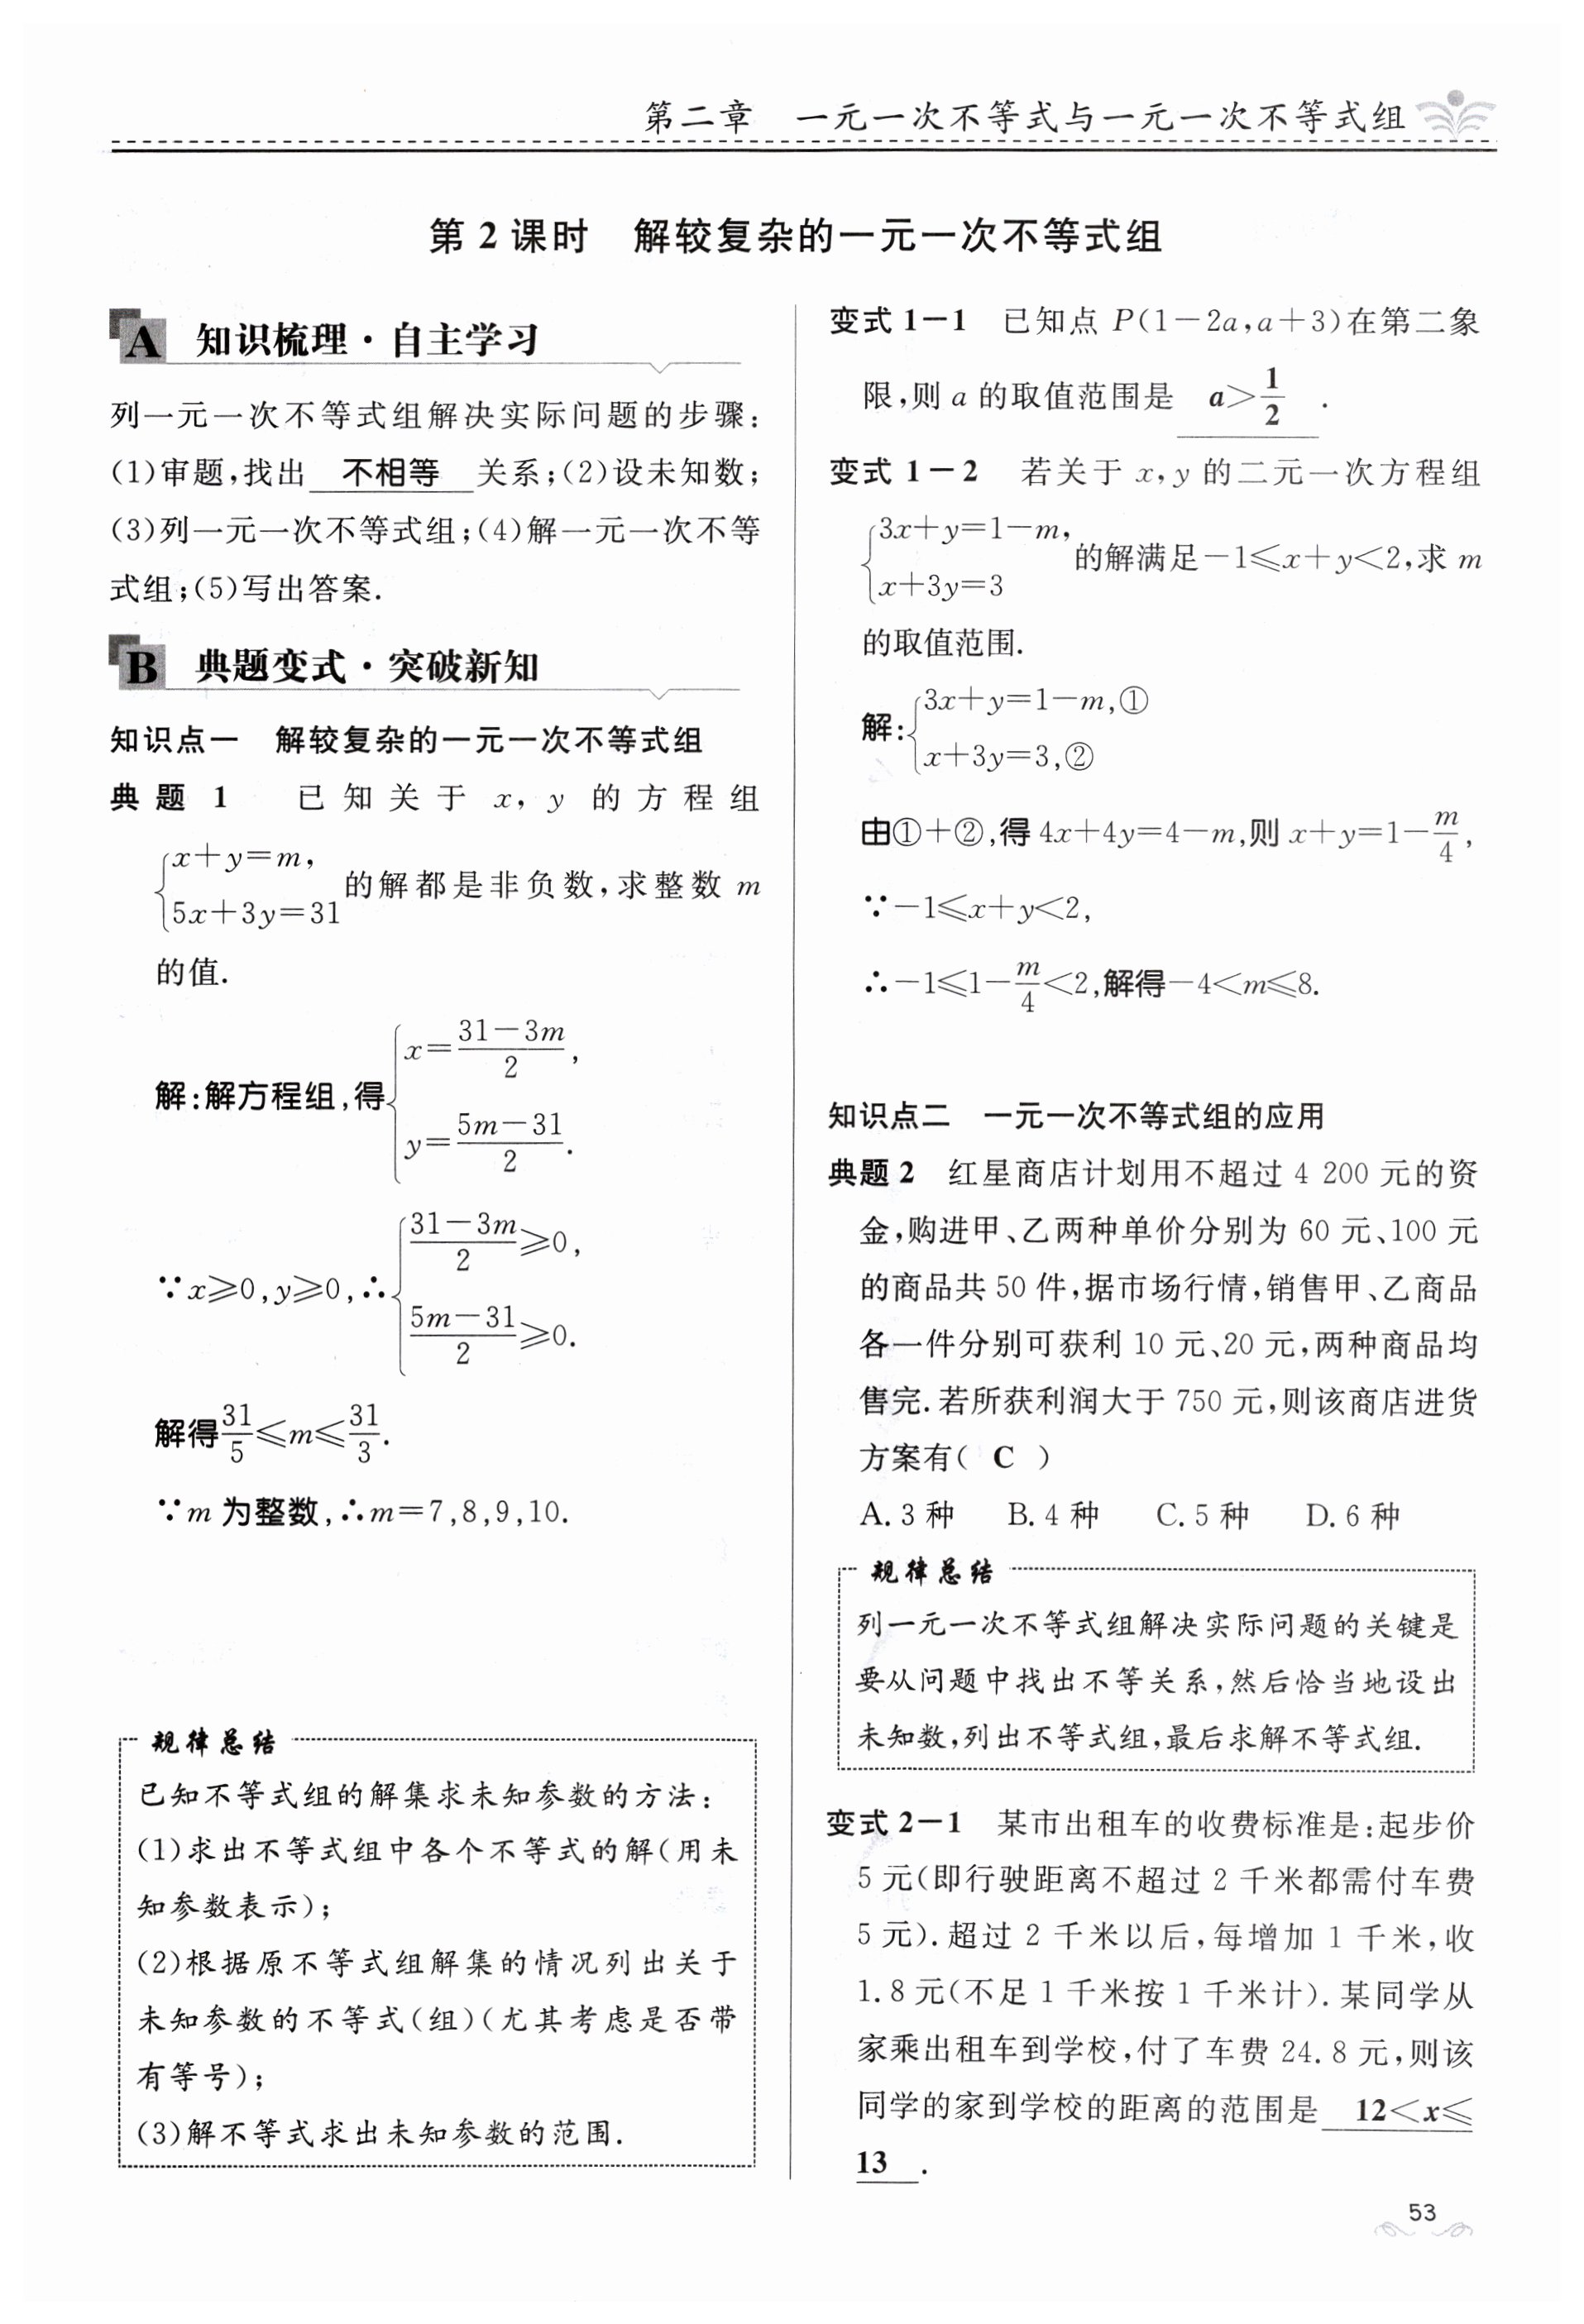 第二章 一元一次不等式与一元一次不等式组
第2课时 解较复杂的一元一次不等式组
A 知识梳理·自主学习
列一元一次不等式组解决实际问题的步骤:
(1)审题,找出 不相等 关系;(2)设未知数;
(3)列一元一次不等式组;(4)解一元一次不等
式组;(5)写出答案.
B 典题变式·突破新知
知识点一 解较复杂的一元一次不等式组
典题1 已知关于 x, y 的方程组
{x+y=m,
5x+3y=31 的解都是非负数,求整数 m
的值.
解:解方程组,得{x=(31-3m)/2,
y=(5m-31)/2.
∵x⩾0,y⩾0,∴{(31-3m)/2⩾0,
(5m-31)/2⩾0.
解得31/5⩽m⩽31/3.
∵m 为整数,∴m=7,8,9,10.
规律总结
已知不等式组的解集求未知参数的方法:
(1)求出不等式组中各个不等式的解(用未
知参数表示);
(2)根据原不等式组解集的情况列出关于
未知参数的不等式(组)(尤其考虑是否带
有等号);
(3)解不等式求出未知参数的范围.
变式1-1 已知点 P(1-2a,a+3)在第二象
限,则 a 的取值范围是 a>1/2 .
变式1-2 若关于 x,y 的二元一次方程组
{3x+y=1-m,
x+3y=3 的解满足-1⩽x+y<2,求 m
的取值范围.
解:{3x+y=1-m,①
x+3y=3,②
由①+②,得 4x+4y=4-m,则 x+y=1-m/4,
∵-1⩽x+y<2,
∴-1⩽1-m/4<2,解得-4<m⩽8.
知识点二 一元一次不等式组的应用
典题2 红星商店计划用不超过 4 200 元的资
金,购进甲、乙两种单价分别为 60 元、100 元
的商品共 50 件,据市场行情,销售甲、乙商品
各一件分别可获利 10 元、20 元,两种商品均
售完.若所获利润大于 750 元,则该商店进货
方案有( C )
A. 3 种 B. 4 种 C. 5 种 D. 6 种
规律总结
列一元一次不等式组解决实际问题的关键是
要从问题中找出不等关系,然后恰当地设出
未知数,列出不等式组,最后求解不等式组.
变式2-1 某市出租车的收费标准是:起步价
5 元(即行驶距离不超过 2 千米都需付车费
5 元).超过 2 千米以后,每增加 1 千米,收
1.8 元(不足 1 千米按 1 千米计).某同学从
家乘出租车到学校,付了车费 24.8 元,则该
同学的家到学校的距离的范围是 12<x⩽
13 .
53